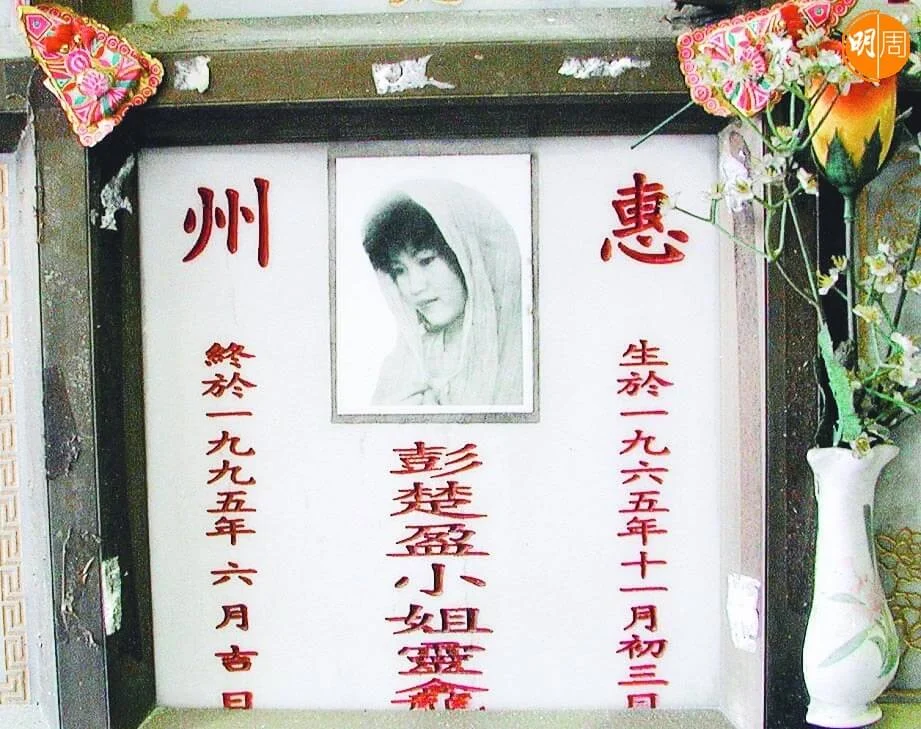 明周
惠州
生於一九六五年十一月初三日
彭楚盈小姐靈龕
終於一九九五年六月吉日